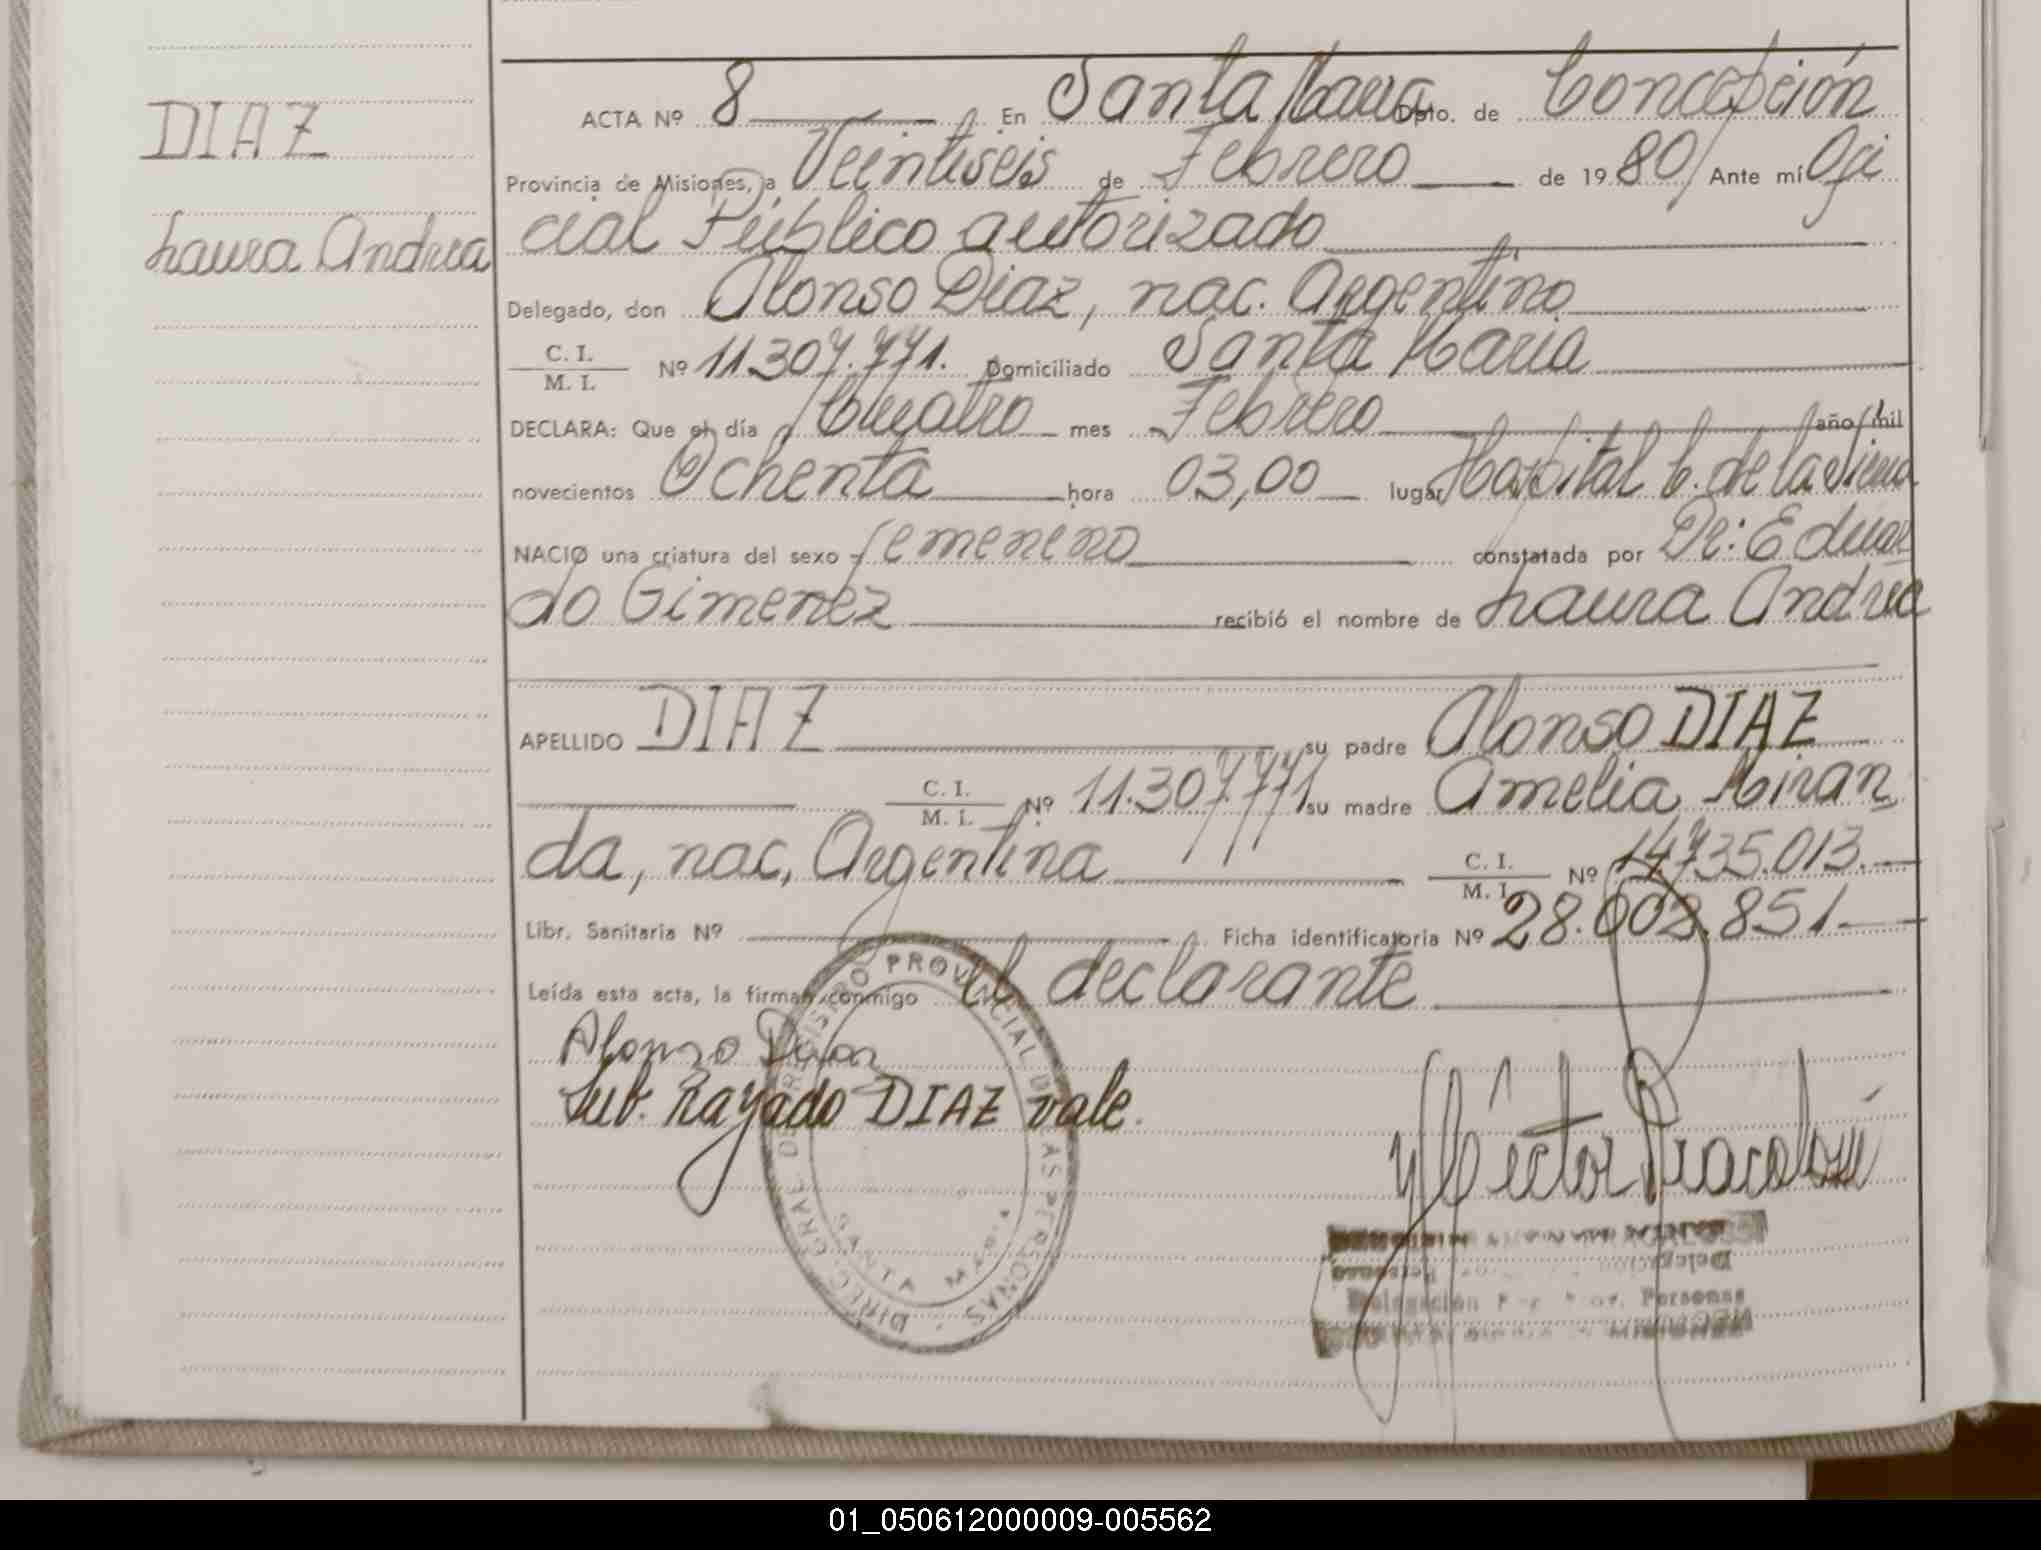 DIAZ
Laura Andrea
ACTA Nº 8 En Santa Maria Dpto. de Concepción
Provincia de Misiones, a Veintiseis de Febrero de 1980 Ante mí Ofi
cial Público autorizado
Delegado, don Alonso Diaz, nac. Argentino
C. I.
M. I. Nº 11.307.771. Domiciliado Santa Maria
DECLARA: Que el día Cuatro mes Febrero año mil
novecientos Ochenta hora 03,00 lugar Hospital C. de la Sierra
NACIO una criatura del sexo femeneno constatada por Dr: Eduar
do Gimenez recibió el nombre de Laura Andrea
APELLIDO DIAZ su padre Alonso DIAZ
C. I.
M. I. Nº 11.307.771 su madre Amelia Miran
da, nac, Argentina C. I.
M. I. Nº 14.735.013.
Libr. Sanitaria Nº Ficha identificatoria Nº 28.002.851
Leída esta acta, la firman conmigo el declarante
Alonso Diaz
Sub. Rayado DIAZ vale.
DIREC. GRAL. DE REGISTRO PROVINCIAL DE LAS PERSONAS
SANTA MARIA
Hector
Delegación
Delegación Personas
MISIONES
01_050612000009-005562